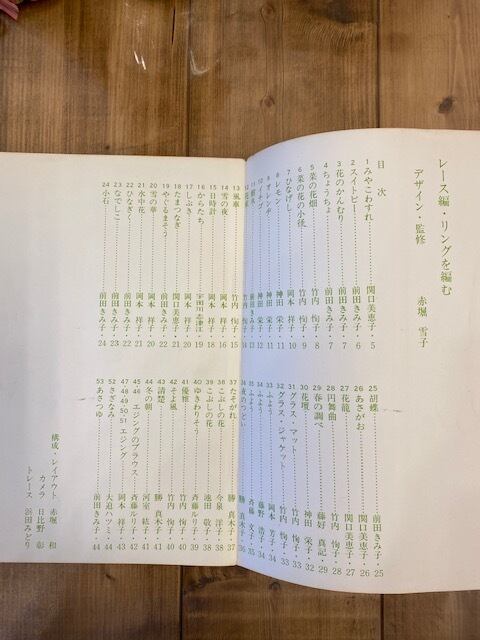 レース編・リングを編む
デザイン・監修　赤堀　雪子
目次
1 みやこわすれ 関口美恵子・5
2 スイトピー 前田きみ子・6
3 花のかんむり 前田きみ子・7
4 ちょうちょ 前田きみ子・7
5 菜の花畑 竹内　侚子・8
6 菜の花の小径 竹内　侚子・9
7 ひなげし 岡本　祥子・10
8 レモン 神田　栄子・11
9 オレンヂ 神田　栄子・11
10 イチゴ 神田　栄子・12
13 風車 竹内　侚子・15
14 雪の夜 岡本　祥子・16
15 日時計 岡本　祥子・17
16 からたち 岡本　祥子・18
17 しぶき 宇田川志津江・19
18 たまつなぎ 関口美恵子・21
19 やぐるまそう 前田きみ子・22
20 雪の華 岡本　祥子・20
21 水中花 岡本　祥子・20
22 ひなぎく 前田きみ子・22
23 なでしこ 前田きみ子・23
24 小石 前田きみ子・24
25 胡蝶 前田きみ子・25
26 あさがお 関口美恵子・26
27 花籠 関口美恵子・27
28 円舞曲 竹内　侚子・28
29 春の調べ 藤好　真記・29
30 花壇 神田　栄子・32
31 グラス　マット 竹内　侚子・33
32 グラス・ジャケット 竹内　侚子・33
33 ふよう 岡本　芳子・34
34 ふよう 藤野　浩子・34
35 ふよう 斉藤　文子・35
36 夜のつどい 勝　真木子・36
37 たそがれ 勝　真木子・37
38 こぶしの花 今泉　洋子・38
39 こぶしの花 池田　敬子・38
40 ゆきわりそう 斉藤ルリ子・39
41 優雅 竹内　侚子・40
42 そよ風 竹内　侚子・40
43 清楚 勝　真木子・41
44 冬の朝 河室　結子・41
45 46 エジングのブラウス 斉藤ルリ子・42
47 48 49 50 51 エジング 岡本　祥子・43
52 さざなみ 大迫ハツミ・44
53 あさつゆ 前田きみ子・44
構成・レイアウト　赤堀　和
カメラ　日比野　彰
トレース　浜田みどり